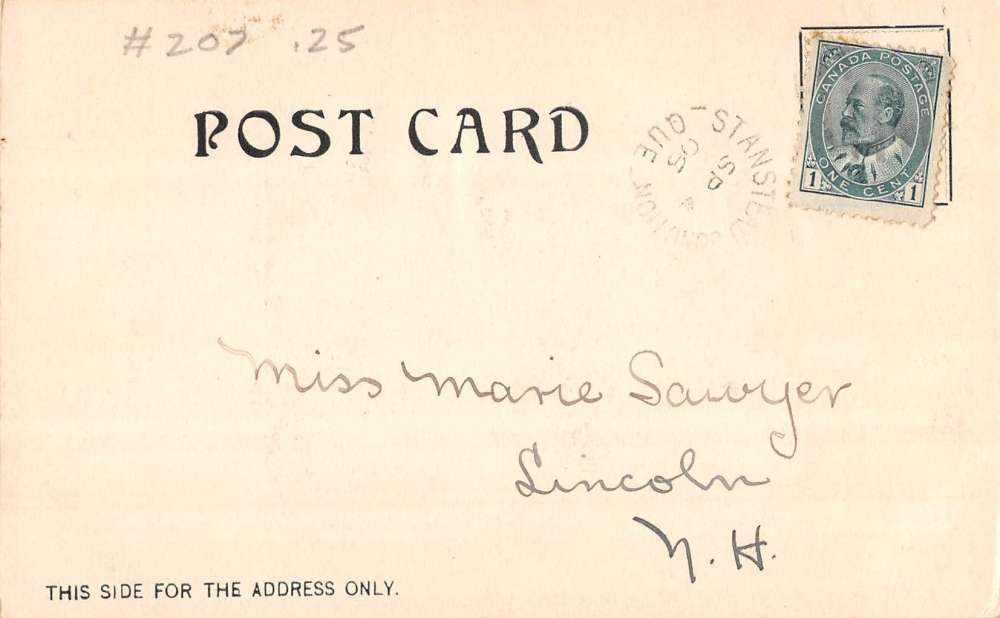 #207 .25
POST CARD
STANSTEAD JUNCTION QUE
SP
05
CANADA POSTAGE
ONE CENT
1 1
Miss Marie Sawyer
Lincoln
N. H.
THIS SIDE FOR THE ADDRESS ONLY.